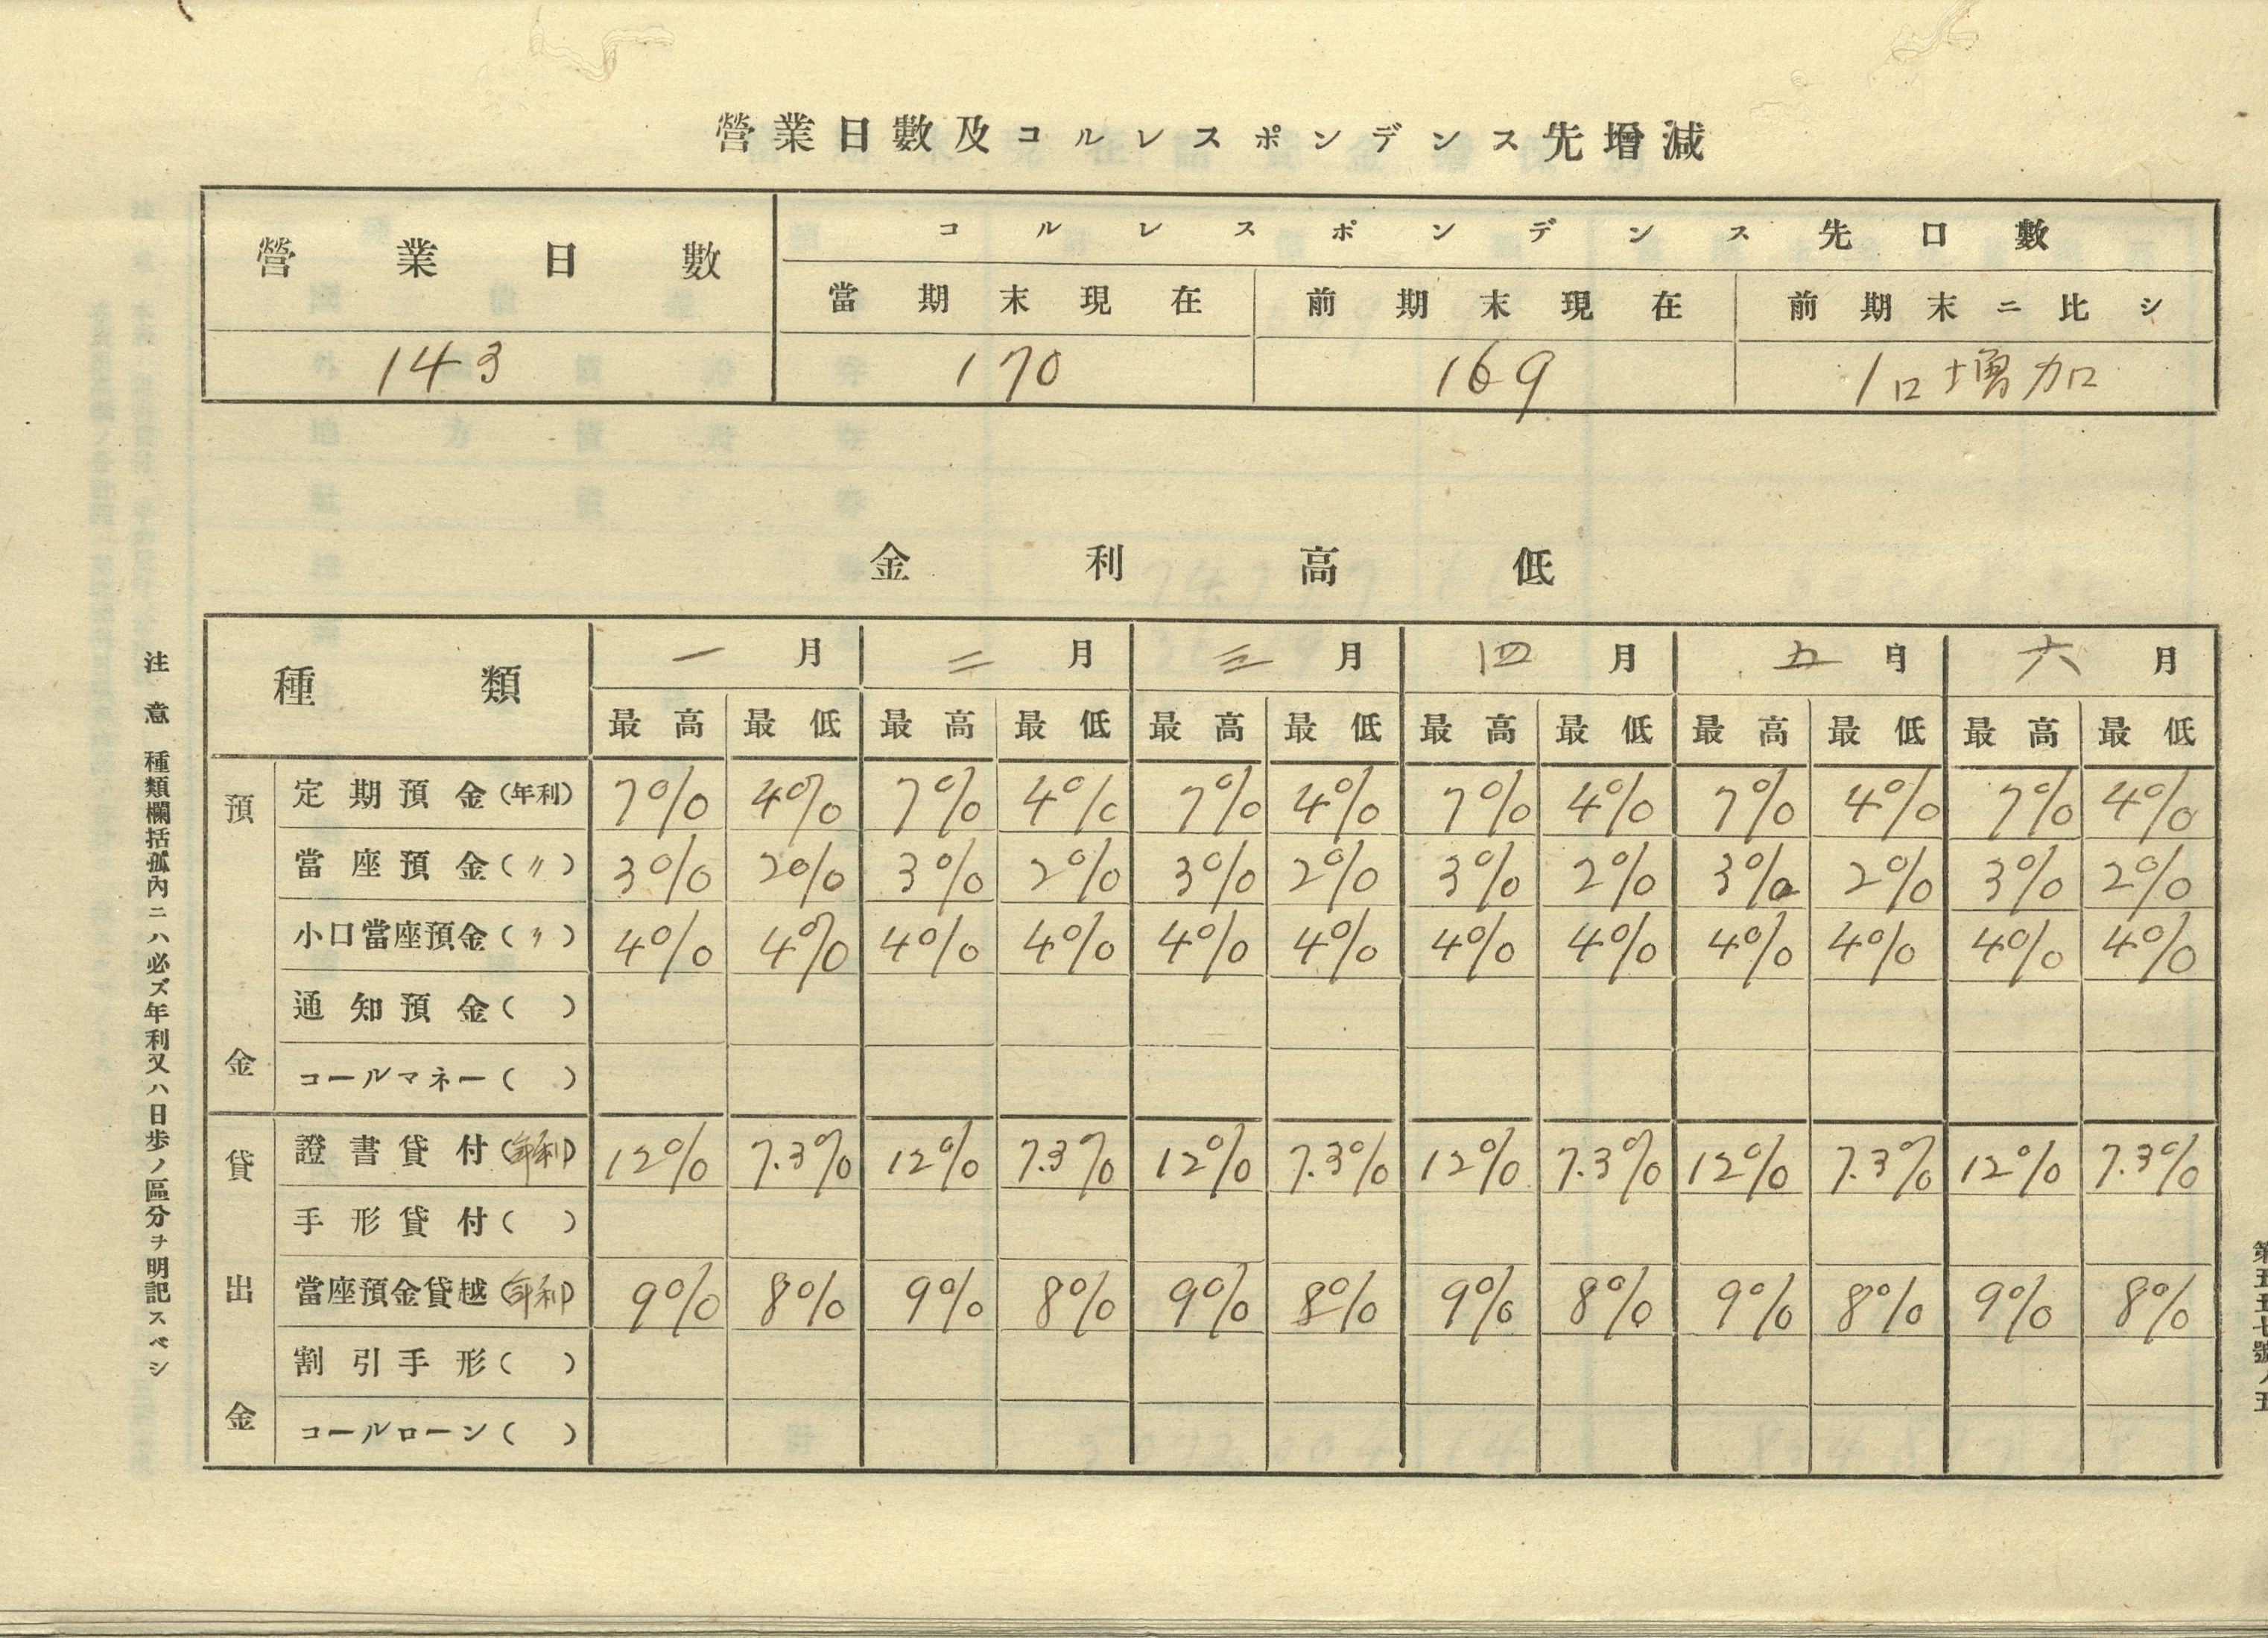 營業日數及コルレスポンデンス先增減
營業日數 コルレスポンデンス先口數
當期末現在 前期末現在 前期末ニ比シ
143 170 169 1口増加口
金利高低
種類 一月 二月 三月 四月 五月 六月
最高 最低 最高 最低 最高 最低 最高 最低 最高 最低 最高 最低
預金
定期預金(年利) 7% 4% 7% 4% 7% 4% 7% 4% 7% 4% 7% 4%
當座預金(〃) 3% 2% 3% 2% 3% 2% 3% 2% 3% 2% 3% 2%
小口當座預金(〃) 4% 4% 4% 4% 4% 4% 4% 4% 4% 4% 4% 4%
通知預金( )
コールマネー( )
貸出金
證書貸付(年利) 12% 7.3% 12% 7.3% 12% 7.3% 12% 7.3% 12% 7.3% 12% 7.3%
手形貸付( )
當座預金貸越(年利) 9% 8% 9% 8% 9% 8% 9% 8% 9% 8% 9% 8%
割引手形( )
コールローン( )
注意 種類欄括孤內ニハ必ズ年利又ハ日歩ノ區分ヲ明記スベシ